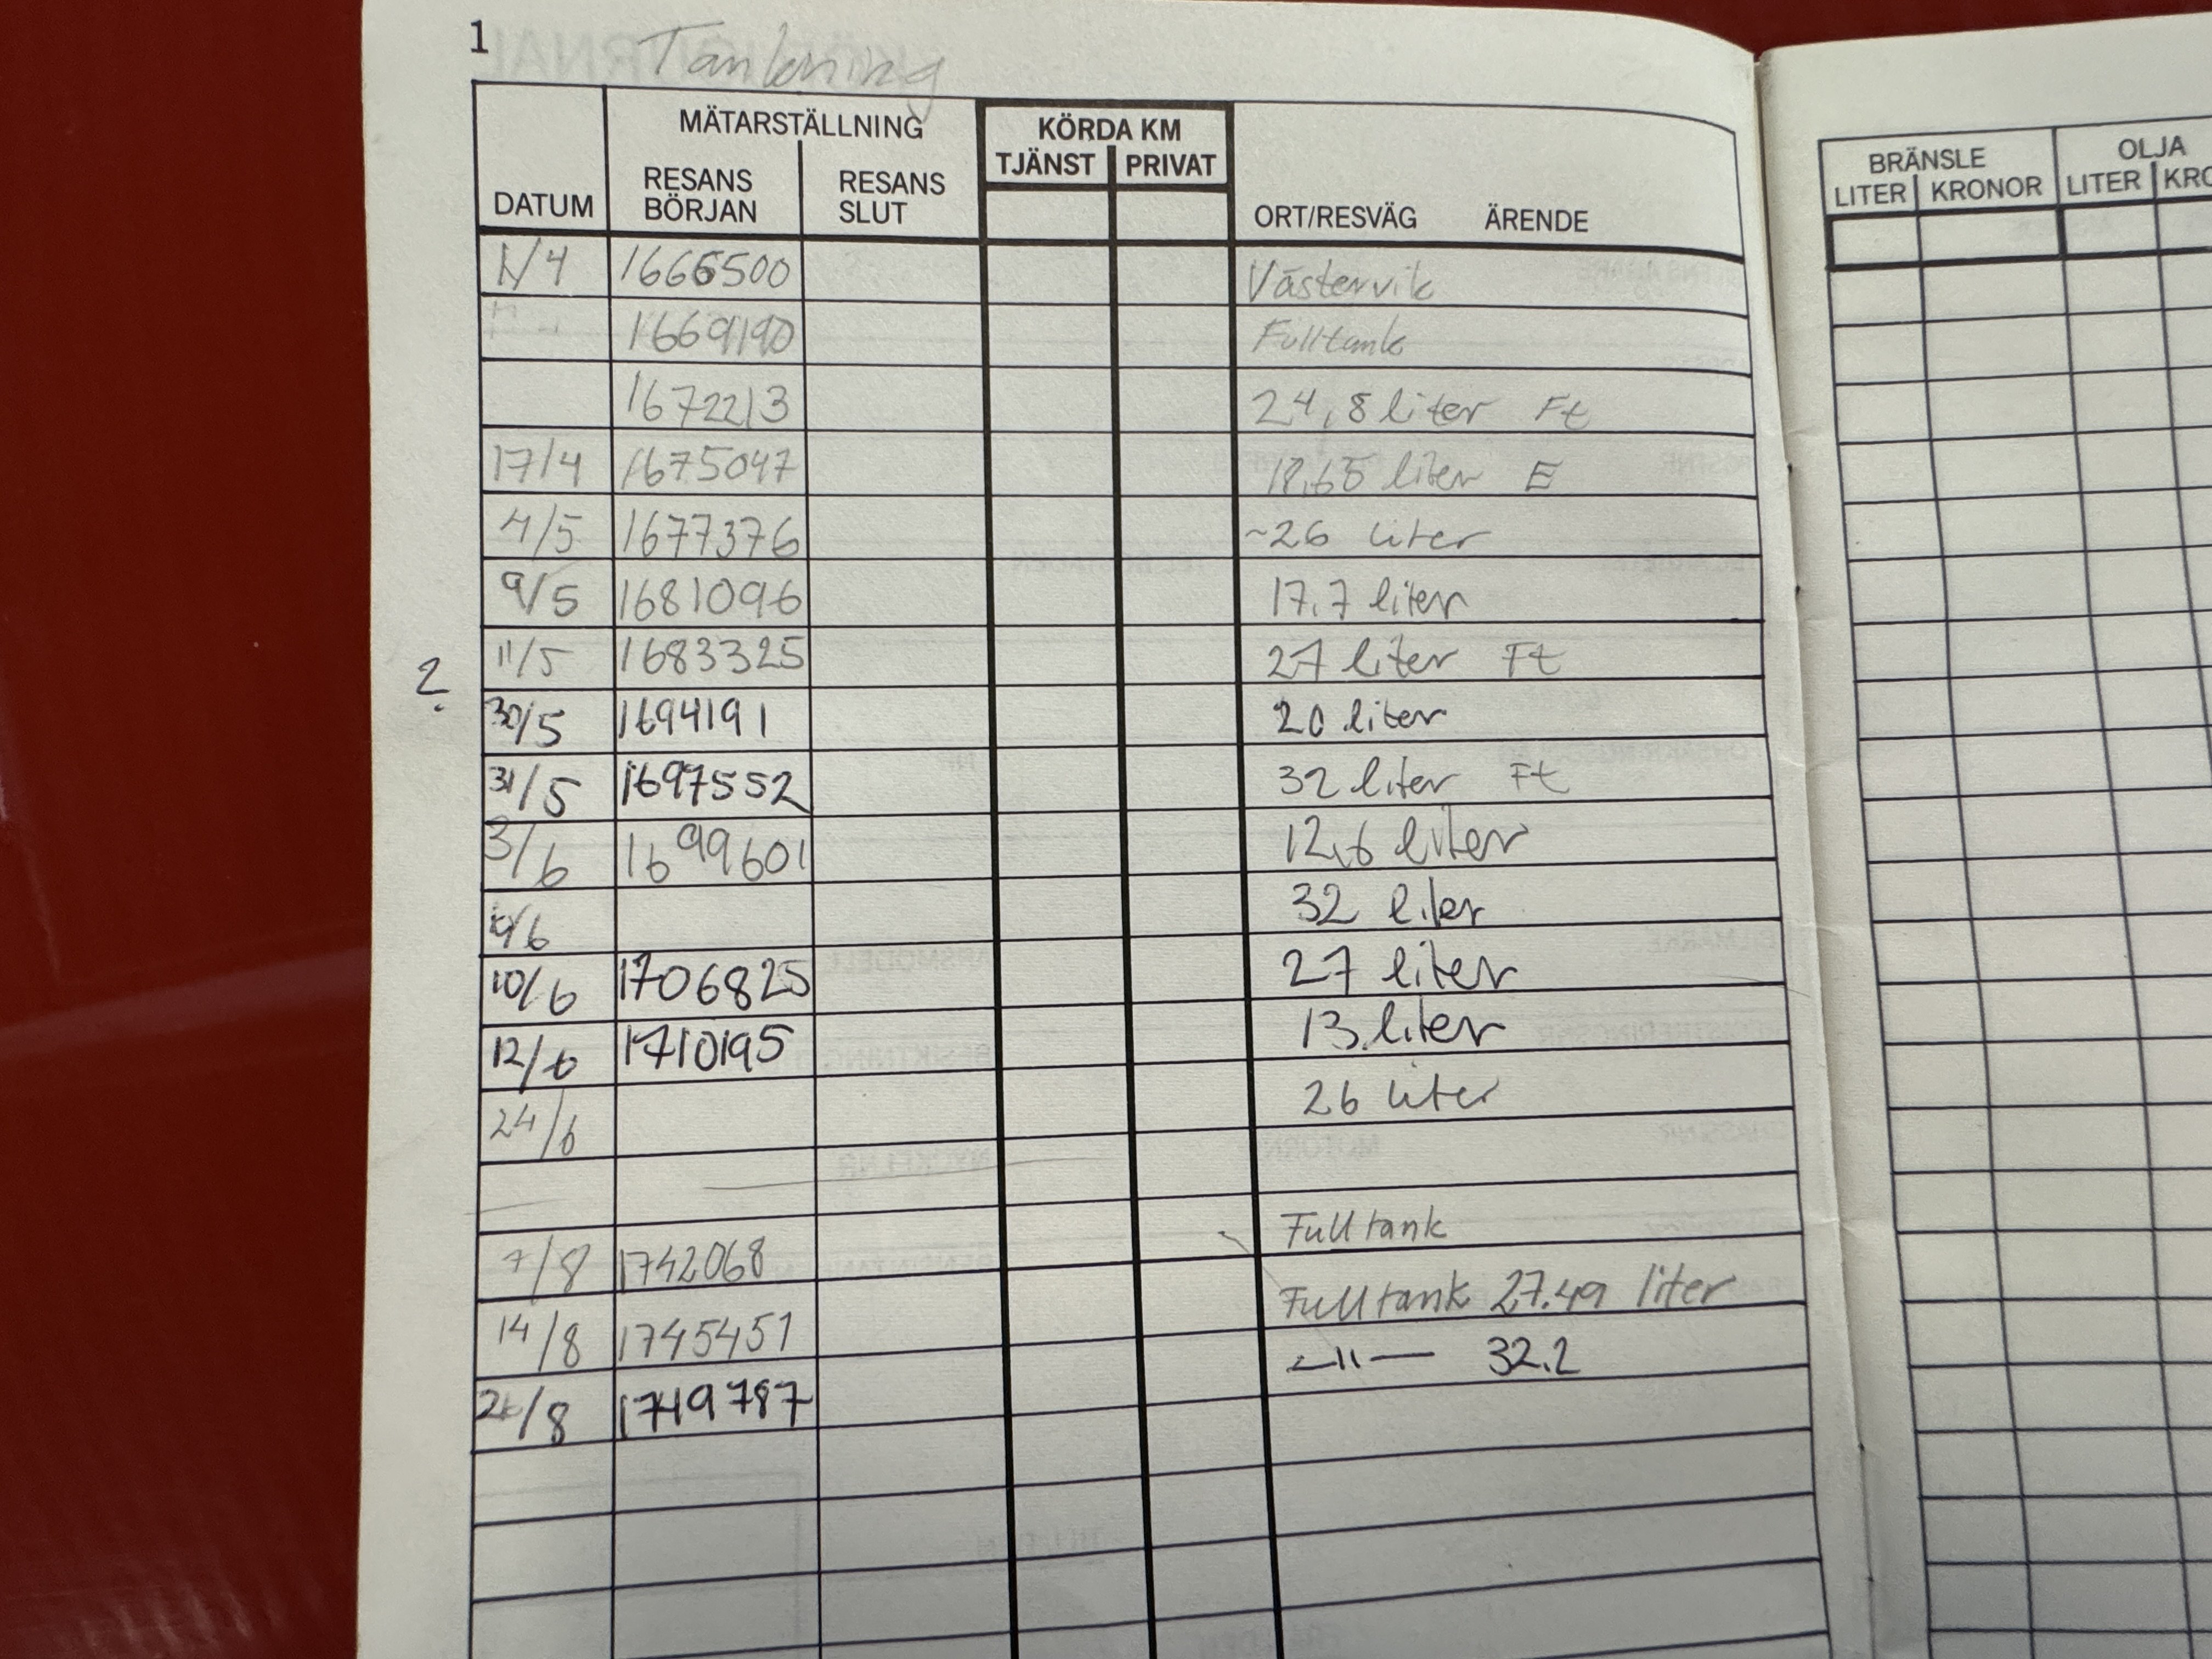 1 Tankning
MÄTARSTÄLLNING KÖRDA KM
DATUM RESANS BÖRJAN RESANS SLUT TJÄNST PRIVAT ORT/RESVÄG ÄRENDE
BRÄNSLE OLJA
LITER KRONOR LITER
1/4 1666500 Västervik
1669190 Fulltank
1672213 24,8 liter Ft
17/4 1675047 18,65 liter E
4/5 1677376 ~26 liter
9/5 1681096 17.7 liter
11/5 1683325 27 liter Ft
2.
30/5 1694191 20 liter
31/5 1697552 32 liter Ft
3/6 1699601 12,6 liter
32 liter
10/6 1706825 27 liter
12/6 1710195 13 liter
24/6 26 liter
7/8 1742068 Fulltank
14/8 1745451 Fulltank 27.49 liter
1749787 —"— 32.2